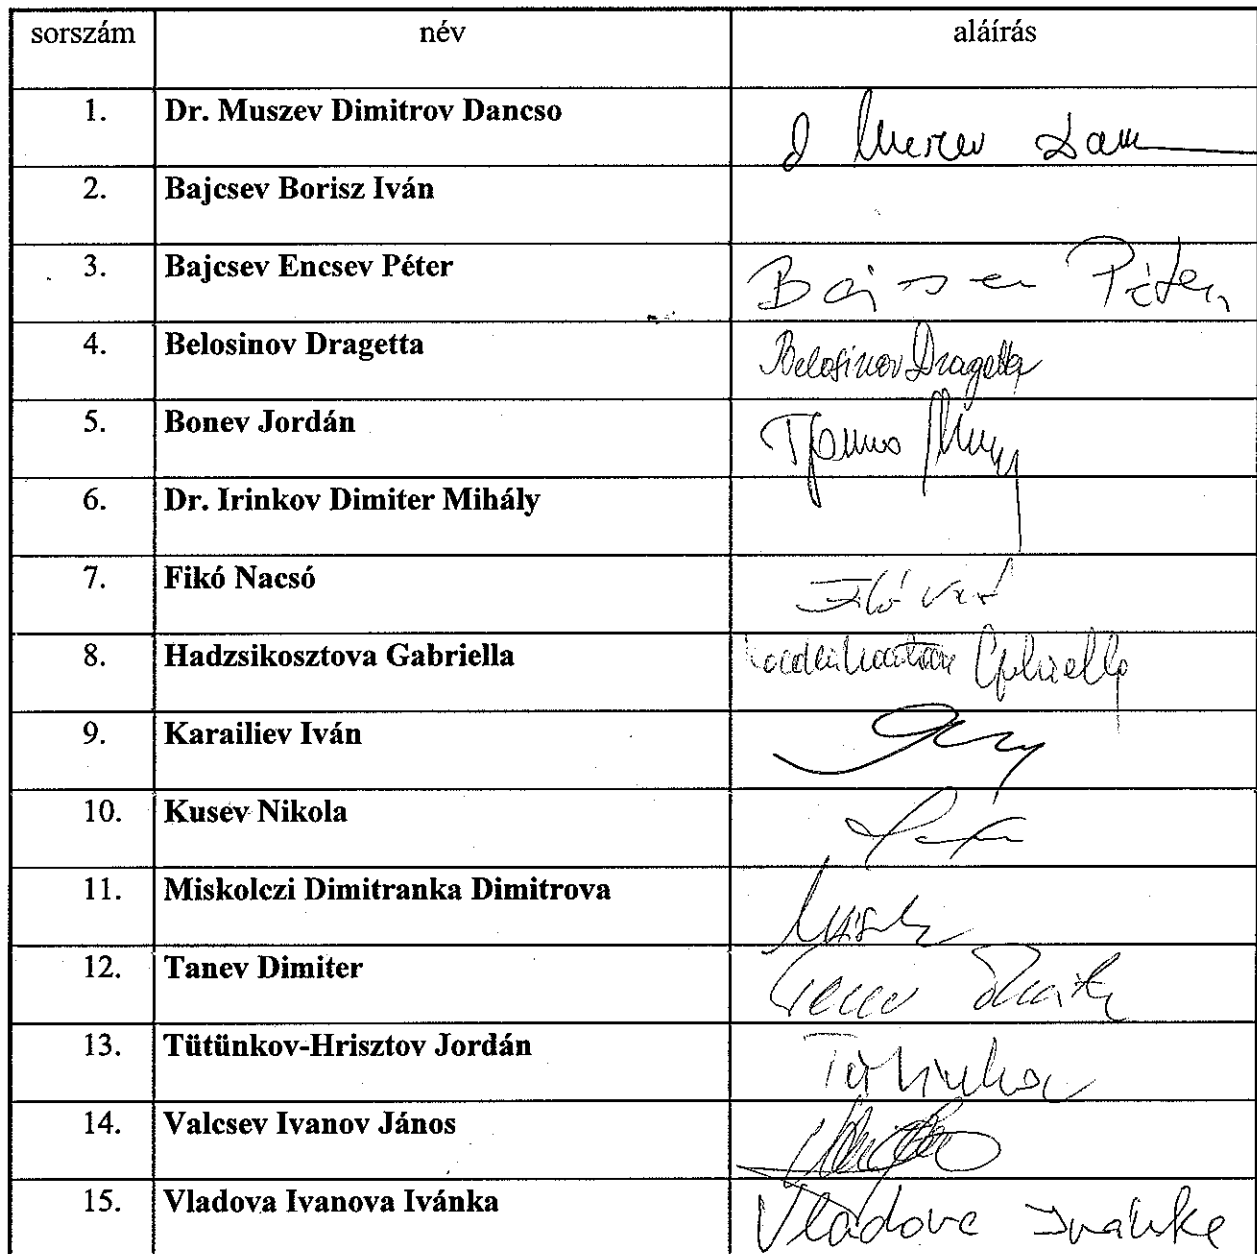 sorszám név aláírás
1. Dr. Muszev Dimitrov Dancso
2. Bajcsev Borisz Iván
3. Bajcsev Encsev Péter Péter
4. Belosinov Dragetta Belosinov Dragetta
5. Bonev Jordán
6. Dr. Irinkov Dimiter Mihály
7. Fikó Nacsó
8. Hadzsikosztova Gabriella Gabriella
9. Karailiev Iván
10. Kusev Nikola
11. Miskolczi Dimitranka Dimitrova
12. Tanev Dimiter
13. Tütünkov-Hrisztov Jordán
14. Valcsev Ivanov János
15. Vladova Ivanova Ivánka Vladova Ivánka